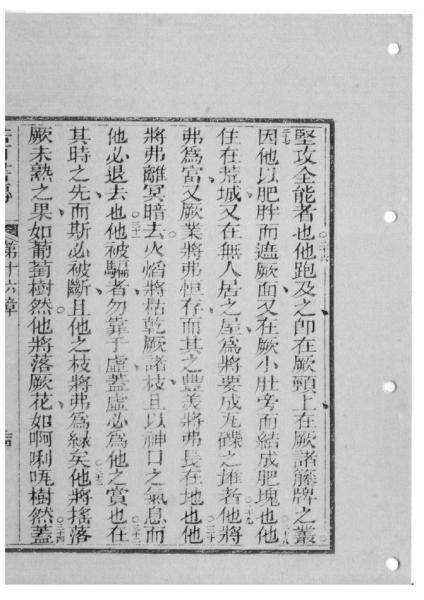 堅攻全能者也〇二十六他跑及之卽在厥頸上在厥諸籐牌之叢〇
二十七因他以肥胖而遮厥面又在厥小肚旁而結成肥塊也〇二十八他
住在荒城又在無人居之屋爲將要成瓦礫之堆者〇二十九他將
弗爲富又厥業將弗恒存而其之豐美將弗長在地也〇三十他
將弗離冥暗去〇火焰將枯乾厥諸枝且以神口之氣息而
他必退去也〇三十一他被騙者勿靠于虛蓋虛必爲他之賞也〇三十二在
其時之先而斯必被斷且他之枝將弗爲綠矣〇三十三他將搖落
厥未熟之果如葡萄樹然〇他將落厥花如啊唎樹然〇三十四蓋
第十六章